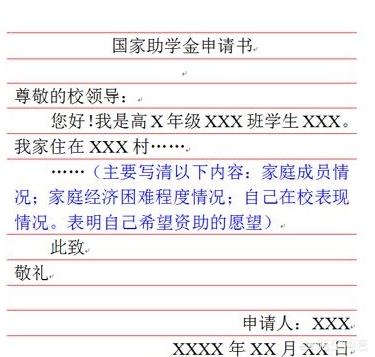 国家助学金申请书
尊敬的校领导：
您好!我是高 X 年级 XXX 班学生 XXX。
我家住在 XXX 村……
……（主要写清以下内容：家庭成员情
况；家庭经济困难程度情况；自己在校表现
情况。表明自己希望资助的愿望）
此致
敬礼
申请人：XXX
XXXX 年 XX 月 XX 日